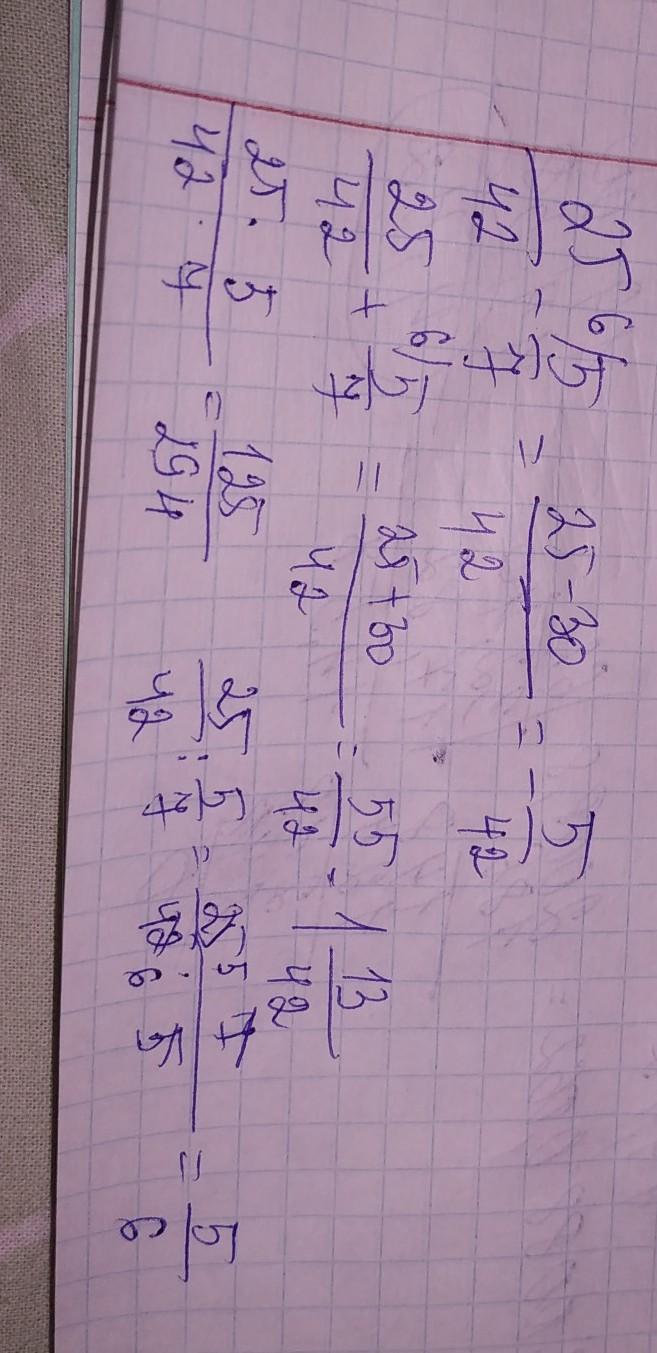 25/42 - 6/5/7 = 25-30/42 = - 5/42
25/42 + 6/5/7 = 25+30/42 = 55/42 - 1 13/42
25 · 5/42 · 7 = 125/294 25/42 : 5/7 = 25 5 7/42 · 6 5 = 5/6